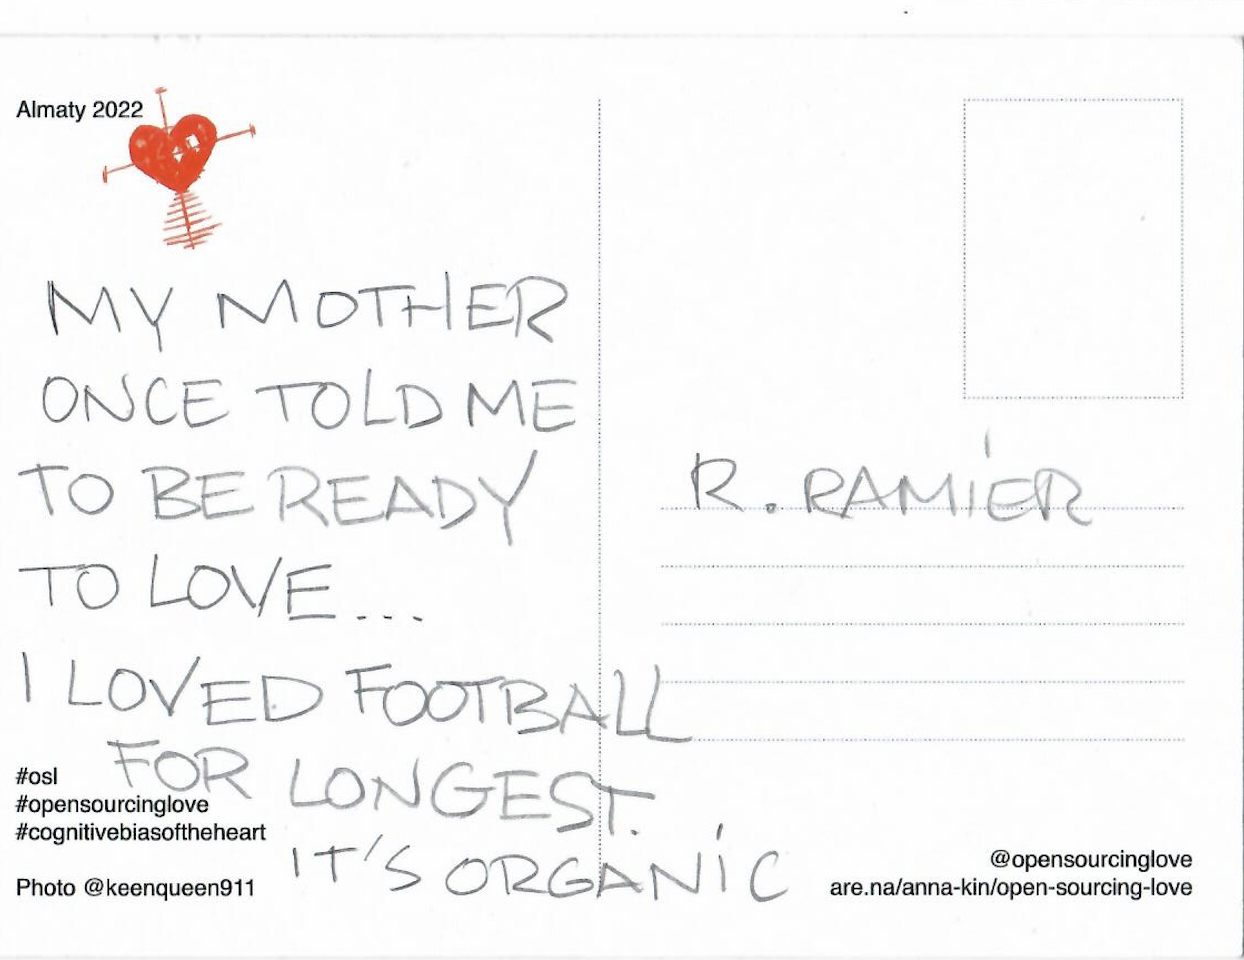 Almaty 2022
MY MOTHER
ONCE TOLD ME
TO BE READY
TO LOVE...
I LOVED FOOTBALL
FOR LONGEST.
IT'S ORGANIC
#osl
#opensourcinglove
#cognitivebiasoftheheart
Photo @keenqueen911
R. RAMIER
@opensourcinglove
are.na/anna-kin/open-sourcing-love